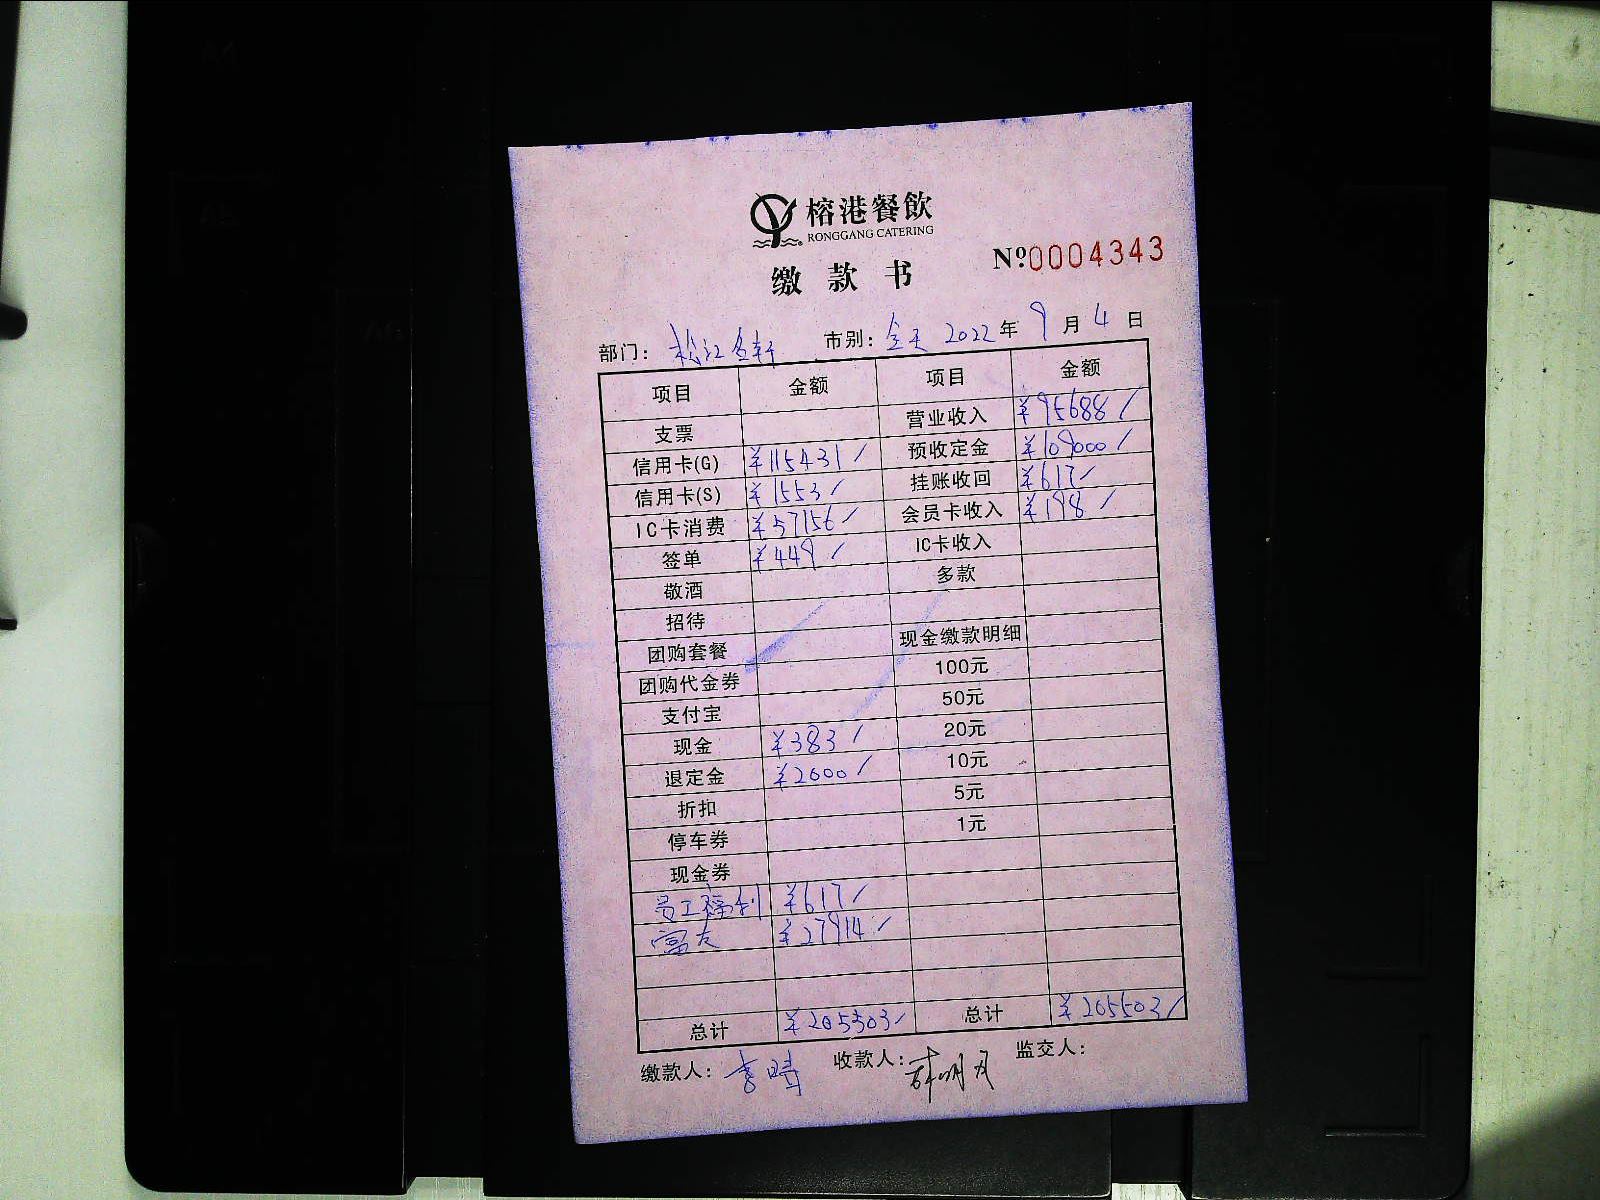 榕港餐飲
RONGGANG CATERING
缴款书
Nº0004343
部门: 松江 市别: 全天 2022年 9月 4日
项目 金额 项目 金额
支票 营业收入 ¥95688/
信用卡(G) ¥115431/ 预收定金 ¥109000/
信用卡(S) ¥1553/ 挂账收回 ¥617/
IC卡消费 ¥57156/ 会员卡收入 ¥198/
签单 ¥449/ IC卡收入
敬酒 多款
招待
团购套餐 现金缴款明细
团购代金券 100元
支付宝 50元
现金 ¥383/ 20元
退定金 ¥2000/ 10元
折扣 5元
停车券 1元
现金券
员工福利 ¥617/
富友 ¥27914/
总计 ¥205503/ 总计 ¥205503/
缴款人: 收款人: 监交人: